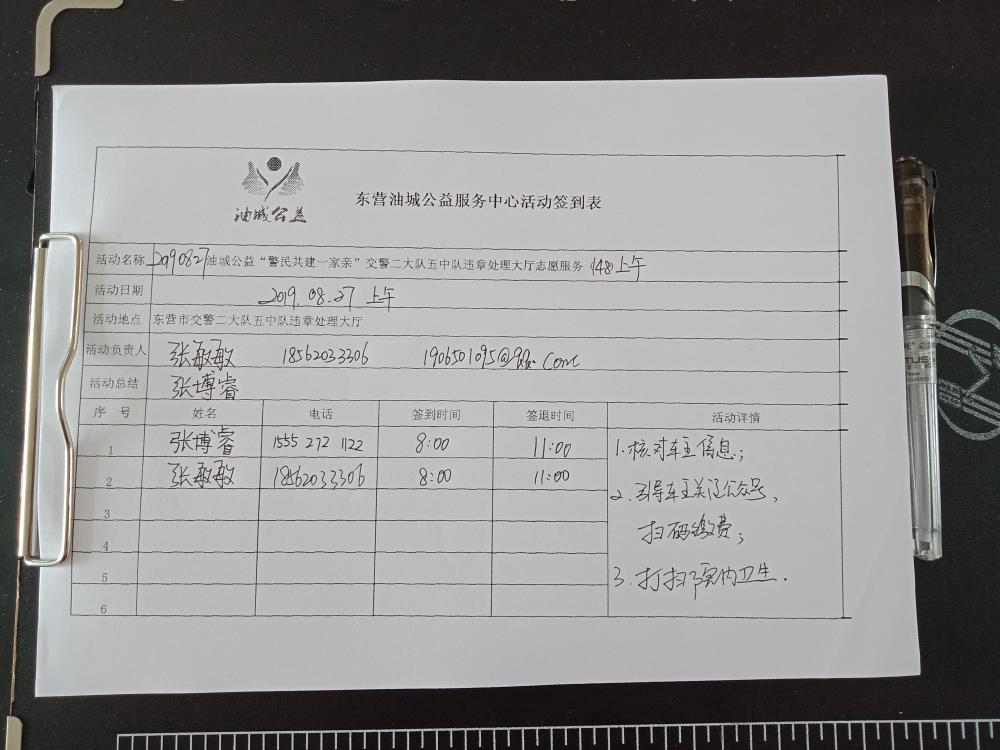 油城公益
东营油城公益服务中心活动签到表
活动名称 20190827油城公益“警民共建一家亲”交警二大队五中队违章处理大厅志愿服务 (48)上午
活动日期 2019.08.27 上午
活动地点 东营市交警二大队五中队违章处理大厅
活动负责人 张敏敏 18562033306 1906501095@qq.com
活动总结 张博睿
序号 姓名 电话 签到时间 签退时间 活动详情
1 张博睿 1555 272 1122 8:00 11:00 1.核对车主信息;
2 张敏敏 18562033306 8:00 11:00
2.引导车主关注公众号,
3
扫码缴费;
4
5 3.打扫室内卫生.
6